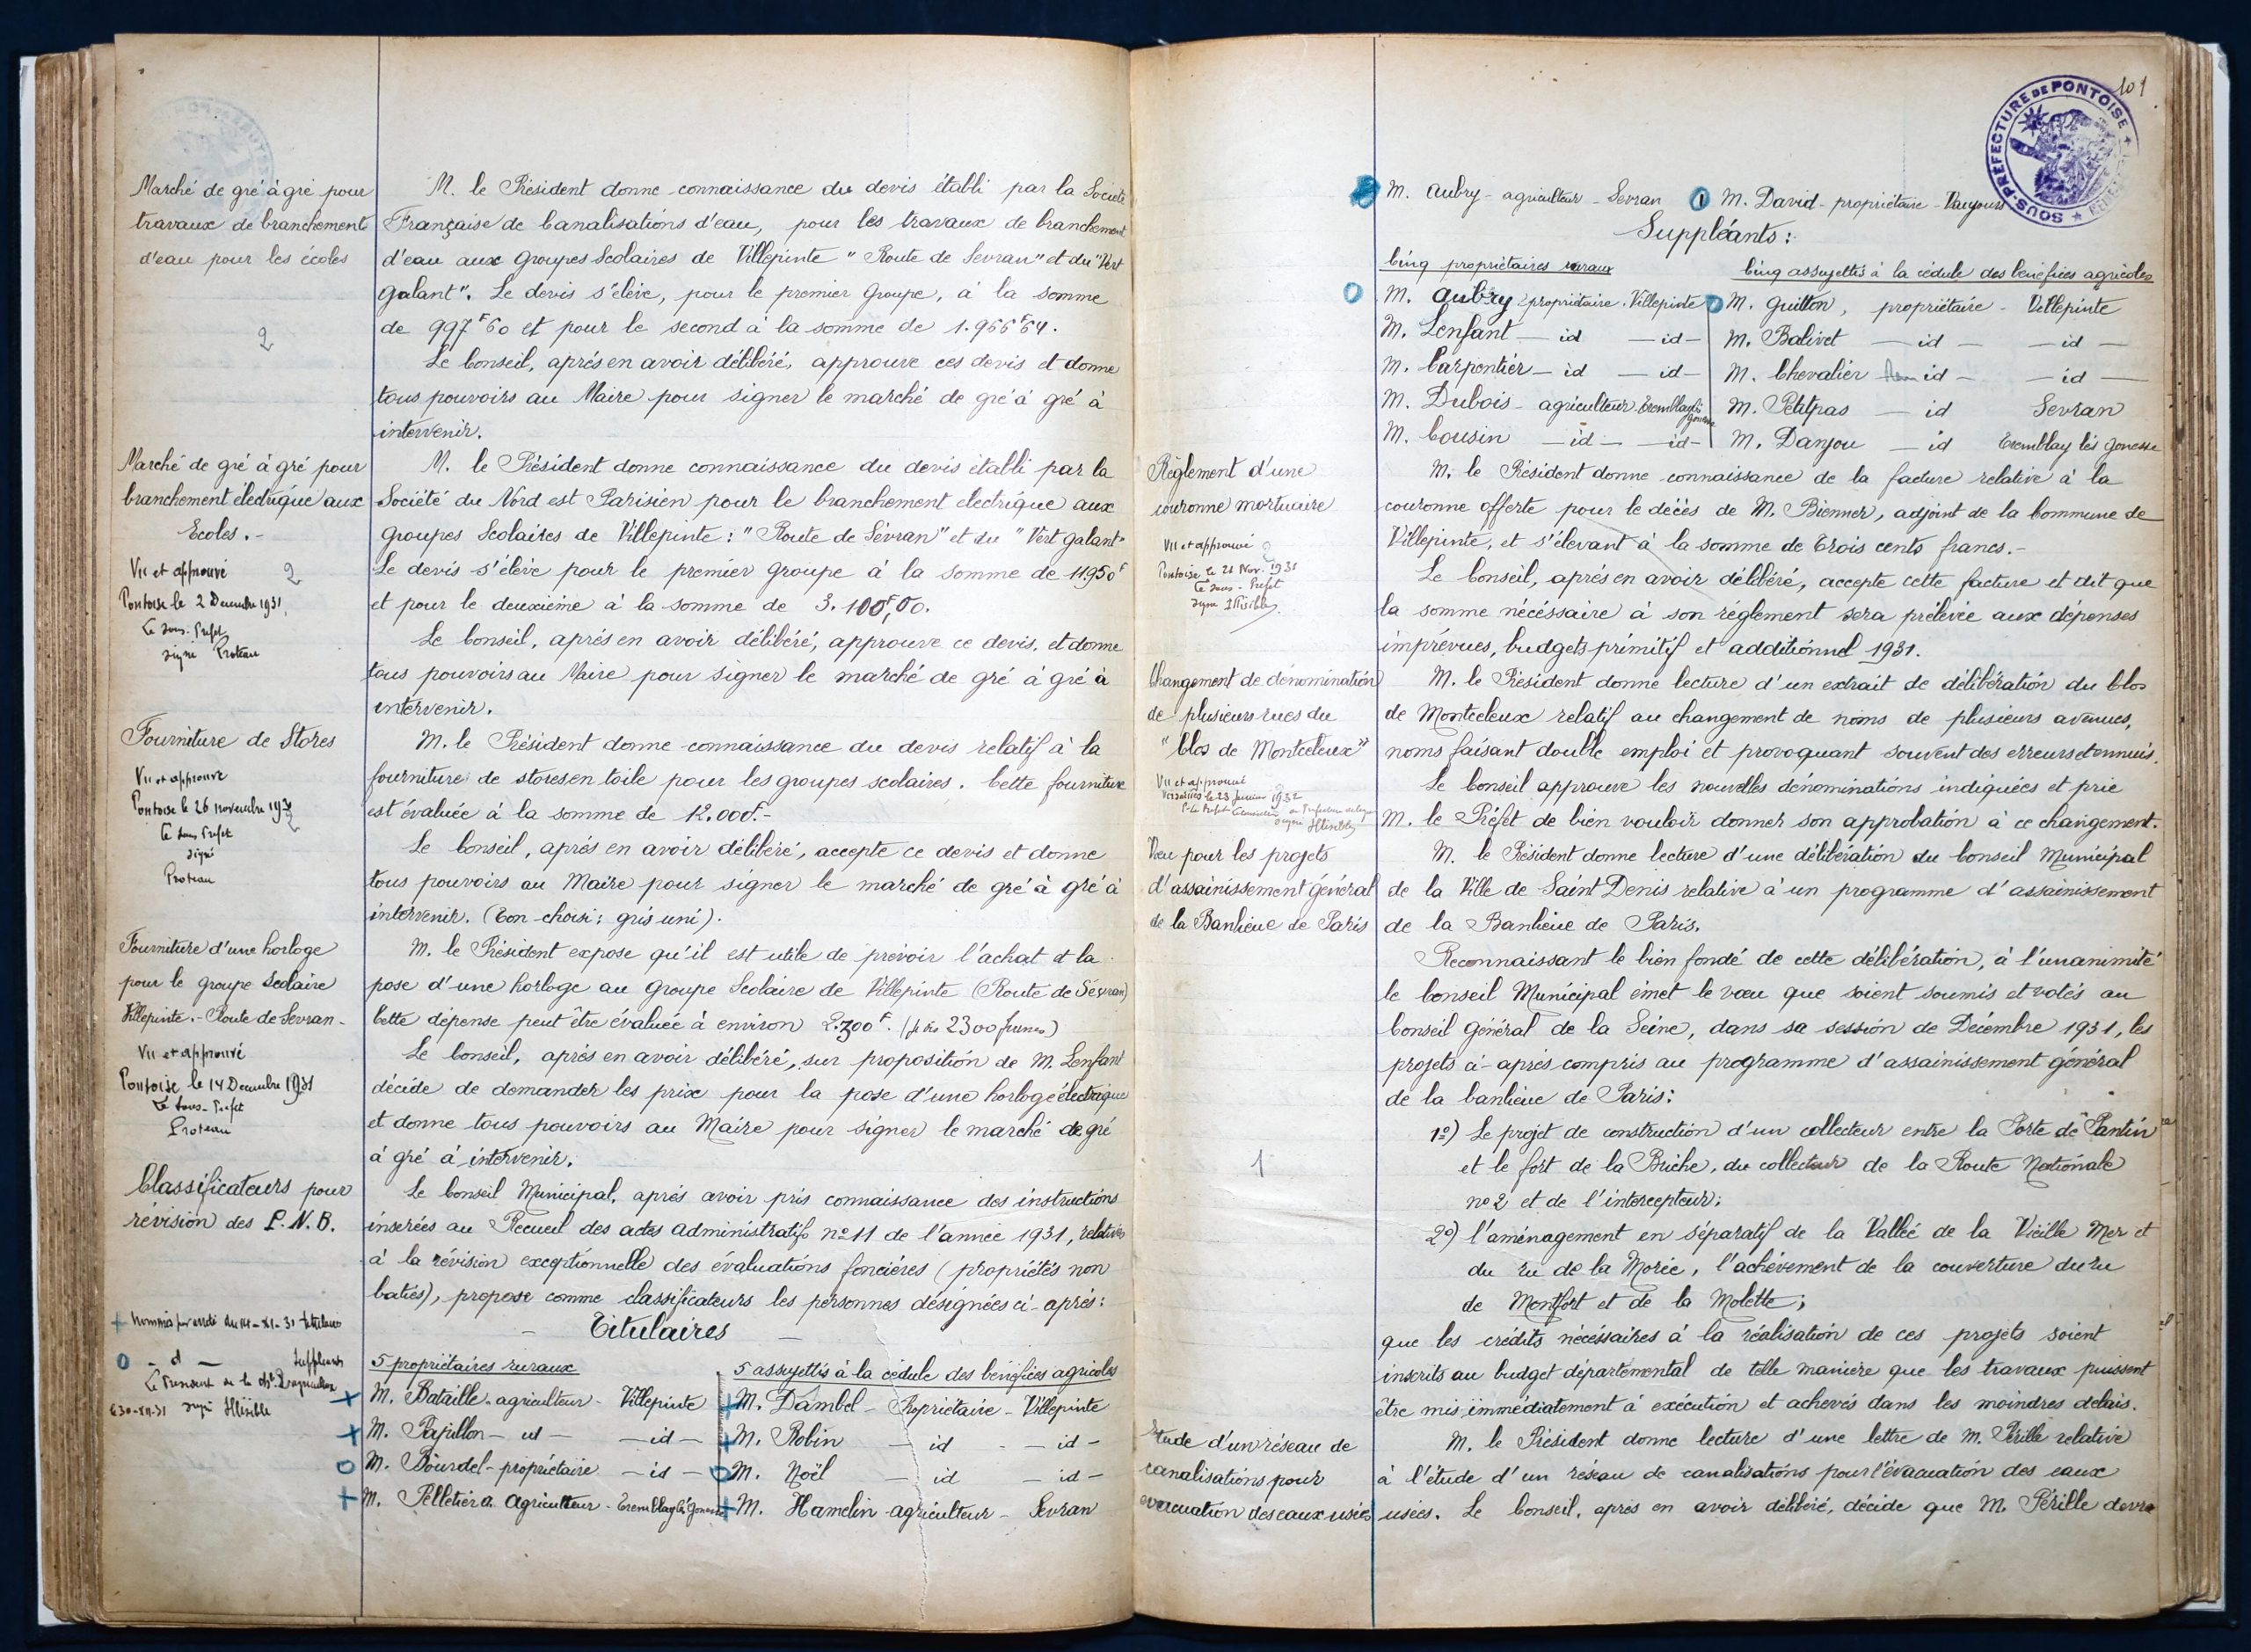 Marché de gré à gré pour
travaux de branchement
d'eau pour les écoles
2
M. le Président donne connaissance du devis établi par la Société
Française de Canalisations d'eau, pour les travaux de branchement
d'eau aux Groupes Scolaires de Villepinte "Route de Sevran" et du "Vert
galant". Le devis s'élève, pour le premier Groupe, à la somme
de 997F60 et pour le second à la somme de 1.956F64.
Le Conseil, après en avoir délibéré, approuve ces devis et donne
tous pouvoirs au Maire pour signer le marché de gré à gré à
intervenir.
Marché de gré à gré pour
branchement électrique aux
Ecoles.-
Vu et approuvé
2
Pontoise le 2 Decembre 1931,
Le Sous-Préfet
signé Proteau
M. le Président donne connaissance du devis établi par la
Société du Nord est Parisien pour le branchement électrique aux
Groupes Scolaires de Villepinte : "Route de Sevran" et du "Vert galant"
Le devis s'élève pour le premier Groupe à la somme de 11950F
et pour le deuxième à la somme de 3.100F,00.
Le Conseil, après en avoir délibéré, approuve ce devis, et donne
tous pouvoirs au Maire pour signer le marché de gré à gré à
intervenir.
Fourniture de Stores
Vu et approuvé
Pontoise le 26 novembre 193
Le Sous Préfet
signé
Proteau
M. le Président donne connaissance du devis relatif à la
fourniture de stores en toile pour les groupes scolaires. Cette fourniture
est évaluée à la somme de 12.000F.-
Le Conseil, après en avoir délibéré, accepte ce devis et donne
tous pouvoirs au Maire pour signer le marché de gré à gré à
intervenir. (Ton choisi : gris uni).
Fourniture d'une horloge
pour le groupe Scolaire
Villepinte.- Route de Sevran-
Vu et approuvé
Pontoise le 14 Decembre 1931
Le Sous-Prefet
Proteau
M. le Président expose qu'il est utile de prévoir l'achat et la
pose d'une horloge au Groupe Scolaire de Villepinte (Route de Sevran)
Cette dépense peut être évaluée à environ 2.300F. (je dis 2300 francs)
Le Conseil, après en avoir délibéré, sur proposition de M. Lenfant
décide de demander les prix pour la pose d'une horloge électrique
et donne tous pouvoirs au Maire pour signer le marché de gré
à gré à intervenir.
Classificateurs pour
révision des P.N.B.
Le Conseil Municipal, après avoir pris connaissance des instructions
insérées au Recueil des actes administratifs no 11 de l'année 1931, relatives
à la révision exceptionnelle des évaluations foncières (propriétés non
baties), propose comme classificateurs les personnes désignées ci-après :
- Titulaires -
+ Nommés par arrêté du 14-XI-31 titulaires
O - d - Suppléants
Illisible
5 propriétaires ruraux
5 assujettis à la cédule des bénéfices agricoles
+ M. Bataille - agriculteur - Villepinte
+ M. Dambel - Propriétaire - Villepinte
+ M. Papillon - id - - id -
+ M. Robin - id - - id -
O M. Bourdel - propriétaire - id -
O M. Noël - id - id -
+ M. Pelletier a. Agriculteur - Tremblay lès Gonesse
+ M. Hamelin - agriculteur - Sevran
101
SOUS-PRÉFECTURE DE PONTOISE
M. Aubry - agriculteur - Sevran
M. David - propriétaire - Vaujours
Suppléants :
Cinq propriétaires ruraux
Cinq assujettis à la cédule des bénéfices agricoles
O M. Aubry propriétaire. Villepinte
O M. Guitton, propriétaire - Villepinte
M. Lenfant - id - id -
M. Balivet - id - - id -
M. Carpentier - id - id -
M. Chevalier id - - id -
M. Dubois - agriculteur Tremblay lès Gonesse
M. Petitpas - id Sevran
M. Cousin - id - - id -
M. Danjou - id Tremblay lès Gonesse
Règlement d'une
couronne mortuaire
Vu et approuvé
2
Pontoise le 21 Nov. 1931
Le Sous-Préfet
signé Illisible
M. le Président donne connaissance de la facture relative à la
couronne offerte pour le décès de M. Bienner, adjoint de la Commune de
Villepinte, et s'élevant à la somme de Trois cents francs.-
Le Conseil, après en avoir délibéré, accepte cette facture et dit que
la somme nécéssaire à son réglement sera prélevée aux dépenses
imprévues, budgets primitif et additionnel 1931.
Changement de dénomination
de plusieurs rues du
"Clos de Montceleux"
Vu et approuvé
Versailles le 23 Janvier 1932
signé Illisible
M. le Président donne lecture d'un extrait de délibération du Clos
de Montceleux relatif au changement de noms de plusieurs avenues,
noms faisant double emploi et provoquant souvent des erreurs et ennuis.
Le Conseil approuve les nouvelles dénominations indiquées et prie
M. le Préfet de bien vouloir donner son approbation à ce changement.
Vœu pour les projets
d'assainissement général
de la Banlieue de Paris
M. le Président donne lecture d'une délibération du Conseil Municipal
de la Ville de Saint Denis relative à un programme d'assainissement
de la Banlieue de Paris.
Reconnaissant le bien fondé de cette délibération, à l'unanimité
le Conseil Municipal émet le vœu que soient soumis et votés au
Conseil Général de la Seine, dans sa session de Décembre 1931, les
projets ci-après compris au programme d'assainissement général
de la banlieue de Paris :
1
1o) Le projet de construction d'un collecteur entre la Porte de Pantin
et le fort de la Briche, du collecteur de la Route Nationale
no 2 et de l'intercepteur ;
2o) l'aménagement en séparatif de la Vallée de la Vieille Mer et
du ru de la Morée, l'achèvement de la couverture du ru
de Montfort et de la Molette ;
que les crédits nécéssaires à la réalisation de ces projets soient
inscrits au budget départemental de telle manière que les travaux puissent
être mis immédiatement à exécution et achevés dans les moindres délais.
Etude d'un réseau de
canalisations pour
évacuation des eaux usées
M. le Président donne lecture d'une lettre de M. Pérille relative
à l'étude d'un réseau de canalisations pour l'évacuation des eaux
usées. Le Conseil, après en avoir délibéré, décide que M. Pérille devra